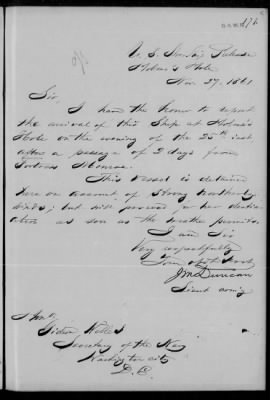 176
U. S. Ship Release
Holmes's Hole
Nov. 27. 1861
Sir,
I have the honor to report
the arrival of this Ship at Holmes's
Hole on the evening of the 25th inst
after a passage of 9 days from
Fortress Monroe.
This Vessel is detained
here on account of Strong Northerly
winds; but will proceed to her destin
ation as soon as the weather permits.
I am Sir
Very respectfully
Your obt Servt
JM Duncan
Lieut comg
Hon
Gideon Welles
Secretary of the Navy
Washington city
D. C.